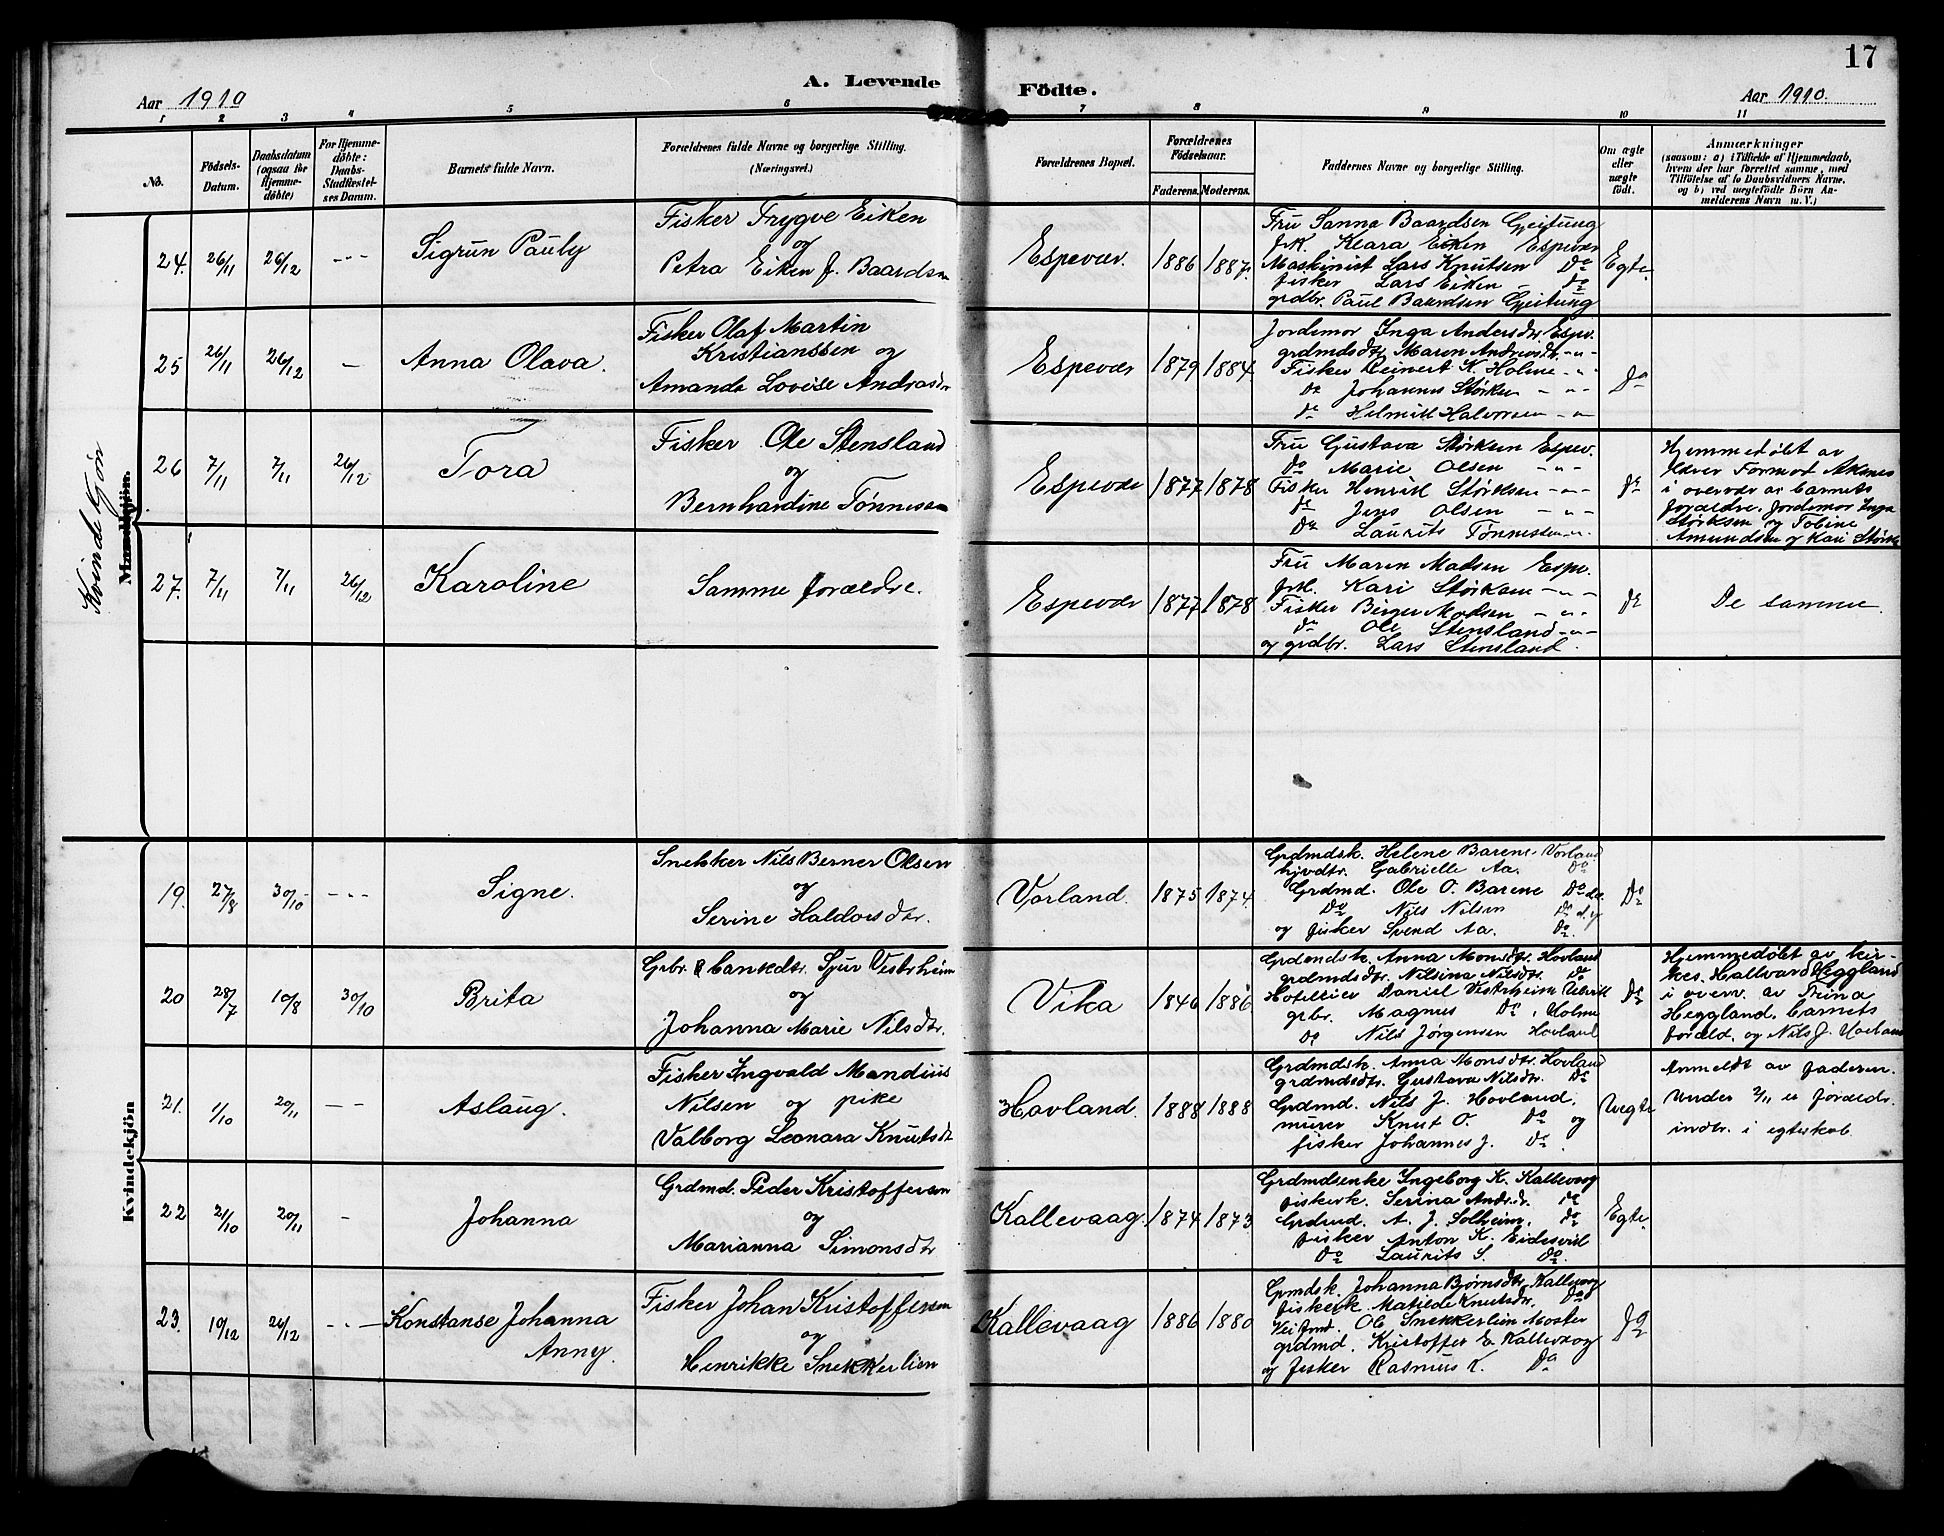 17
A. Levende Födte.
Aar 1910
Aar 1910.
1 2 3 4 5 6 7 8 9 10 11
No.
Födsels-Datum.
Daabsdatum (ogsaa for Hjemmedøbte)
For Hjemmedøbte: Daabs-Stadfæstelses Datum.
Barnets fulde Navn.
Forældrenes fulde Navne og borgerlige Stilling.
(Næringsvei.)
Forældrenes Bopæl.
Forældrenes Fødselsaar.
Faderens. Moderens.
Faddernes Navne og borgerlige Stilling.
Om ægte eller uægte født.
Anmærkninger
(saasom: a) i Tilfælde af Hjemmedaab,
hvem der har forrettet samme, med
Tilföielse af to Daabsvidners Navne,
og b) ved uægtefödte Börn An-
melderens Navn m. V.)
Kvindekjön
Mandkjön.
24. 26/11 26/12 ---
Sigrun Pauly
Fisker Trygve Eiken
og
Petra Eiken f. Baardsen
Espevær. 1886 1887.
Fru Sanna Baardsen Gjeitung
frk. Klara Eiken Espevær
Maskinist Lars Knutsen Do
fisker Lars Eiken - Do
grdbr. Paul Baardsen Gjeitung
Egte
25 26/11 26/12 —
Anna Olava.
Fisker Olaf Martin
Kristianssen og
Amanda Lovise Andrasdr
Espevær 1879 1884.
Jordemor Inga Andersdtr Espev.
grdmdsdtr. Maren Andreasdr. -"-
Fisker Reinert K. Holme -"
Do Johannes Størksen -"-
Do Helmikk Halvorsen -"
Do
26 7/11 7/11 26/12
Tora
Fisker Ole Stensland
og
Bernhardine Tønnesen
Espevær 1877 1878
Fru Gustava Størksen Espev.
Do Marie Olsen -"-
Fisker Henrik Størksen -"-
Do Jens Olsen -"-
Do Laurits Tønnessen -"-
Do
Hjemmedøbt av
lærer Formod Aknes
i overvær av barnets
forældre. Jordemor Inga
Størksen og Tobine
Amundsen og Kari Størks
27. 7/11 7/11 26/12
Karoline
Samme forældre.
Espevær 1877 1878
Fru Maren Madsen Espv.
frk. Kari Størksen -"-
Fisker Birger Madsen -"-
Do Ole Stensland -"-
og grdbr. Lars Stensland.
Do
De samme.
Kvindekjön
19. 27/8 30/10 ---
Signe.
Snekker Nils Berner Olsen
og
Serine Haldorsdtr.
Vorland. 1875 1874.
Grdmdsk. Helene Barene Vorland
hjvdtr. Gabrielle Aa. Do
Grdmd. Ole O. Barene Do
Do Nils Nilsen Do
og fisker Svend Aa. Do
Do
20 28/7 10/8 30/10
Brita
Grbr. & bankdtr. Sjur Vestrheim
og
Johanna Marie Nilsdtr.
Vika 1846 1886
Grdmdsk. Anna Monsdtr. Hovland
grdmdsdtr. Nilsina Nilsdtr. Do
Hotellier Daniel Vestrheim
grbr. Magnus Do, Holme
Do Nils Jørgensen Hovland
Do
Hjemmedøbt av kir-
kes. Hallvard Heggland
i overv. av Trina
Heggland, barnets
foræld. og Nils J. Hovland
21. 1/10 20/11 ---
Aslaug.
Fisker Ingvald Mandius
Nilsen og pike
Valborg Leonara Knutsdt
Hovland. 1888 1888
Grdmdsk. Anna Monsdtr. Hovland
grdmdsdtr. Gustava Nilsdtr. Do
Grdmd. Nils J. Hovland,
murer Knut O. Do og
fisker Johannes J. Do
Uegte
Anmeldt av faderen.
Under 2/11 er forældr.
indtr. i egteskab
22 21/10 20/11 -
Johanna
Grdmd. Peder Kristoffersen
og
Marianna Simonsdtr
Kallevaag. 1874 1873
Grdmdsenke Ingeborg K. Kallevaag
fiskerk. Serina Andr.d. Do
Grdmd. A. J. Solheim. Do
fisker Anton K. Eidesvik
Do Laurits S. Do.
Egte
23. 19/12 26/12 ---
Konstanse Johanna
Anny.
Fisker Johan Kristoffersen
og
Henrikke Snekkerlien
Kallevaag 1886 1880
Grmdsk. Johanna Bjørnsdtr. Kallevaag
fiskerk. Matilde Knutsdr. Do
Veiformd. Ole Snekkerlien Moster
grdmd. Kristoffer E. Kallevaag
og fisker Rasmus K. Do
Do